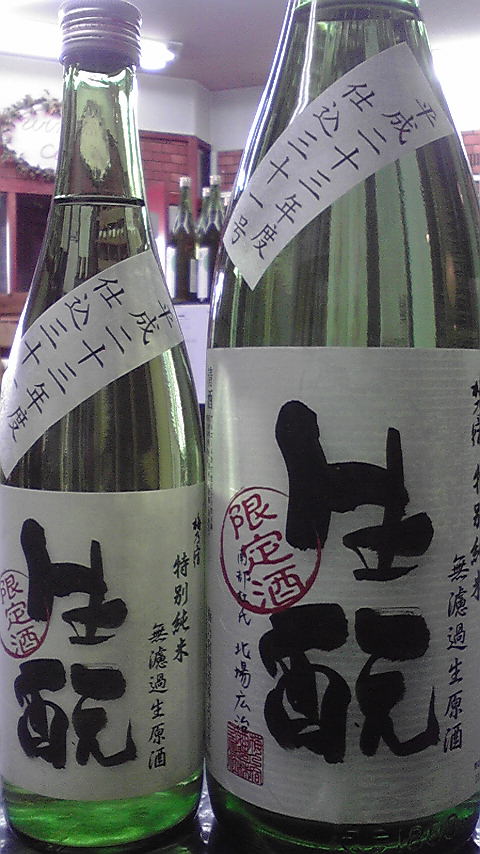 平成二十三年度
仕込三十一号
梅乃宿 特別純米
無濾過生原酒
生酛
限定酒
北場広治
平成二十三年度
仕込三十
梅乃宿
特別純米
無濾過生原酒
生酛
限定酒